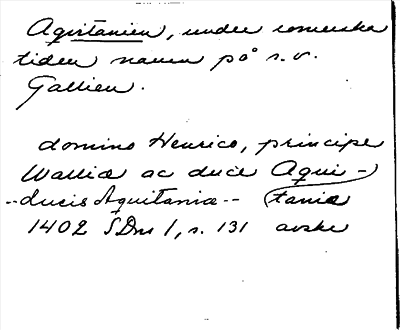 Aqvitanien, under romerska
tiden namn på s.v.
Gallien.
domino Henrico, principe
Walliæ ac duce Aqui-)
--ducis Aquitaniæ-- (taniæ
1402 SDns 1, s. 131 avskr